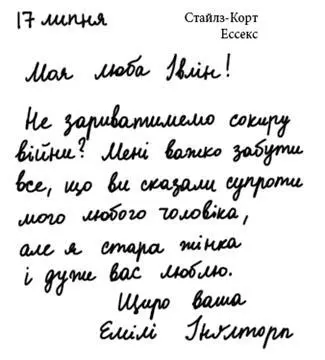 17 липня
Стайлз-Корт
Ессекс
Моя люба Івлін!
Не зариватимемо сокиру
війни? Мені важко забути
все, що ви сказали супроти
мого любого чоловіка,
але я стара жінка
і дуже вас люблю.
Щиро ваша
Емілі Інґлторп